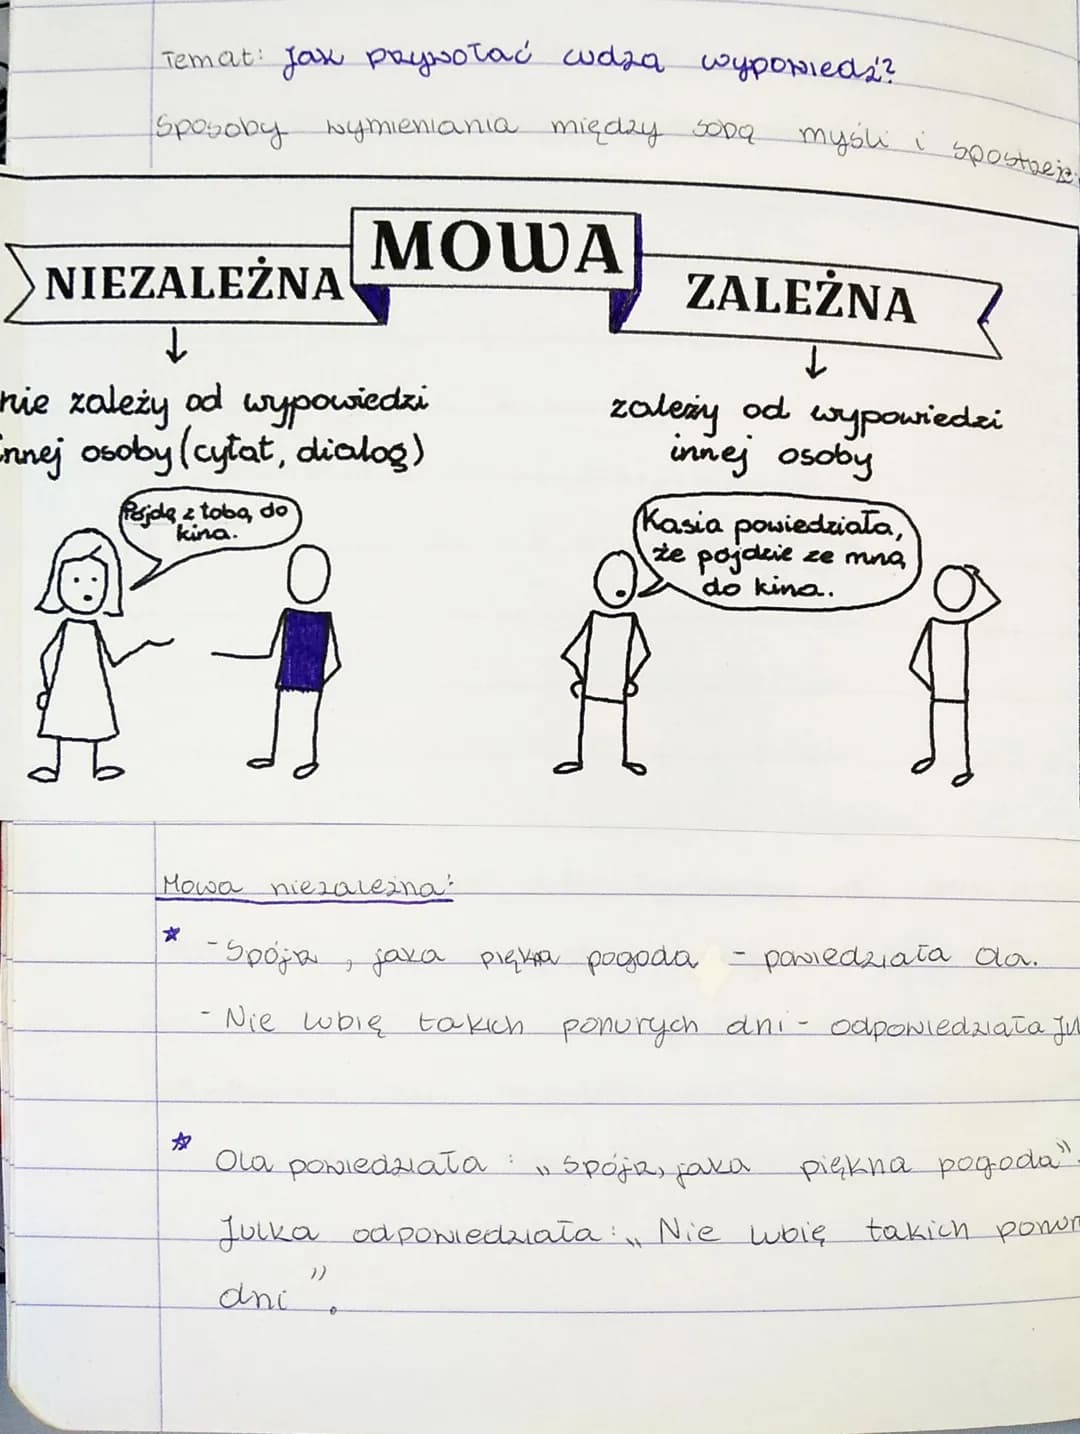 Temat: Jak przywołać cudzą wypowiedź?
Sposoby wymieniania między sobą myśli i spostrzeż
MOWA
NIEZALEŻNA
ZALEŻNA
nie zależy od wypowiedzi
innej osoby (cytat, dialog)
zależy od wypowiedzi
innej osoby
Pójdę z tobą do
kina.
Kasia powiedziała,
że pójdzie ze mną
do kina.
Mowa niezależna:
- Spójrz, jaka piękna pogoda - powiedziała Ola.
- Nie lubię takich ponurych dni - odpowiedziała Jul
Ola powiedziała: „Spójrz, jaka piękna pogoda”.
Julka odpowiedziała: „Nie lubię takich ponur
dni”.